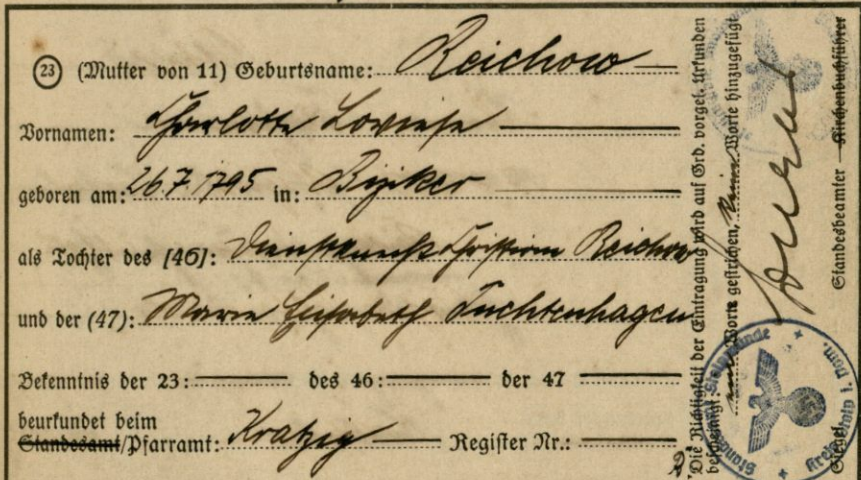 (23) (Mutter von 11) Geburtsname: Reichow
Vornamen: Charlotte Lowiese
geboren am: 26.7.1795 in: Biziker
als Tochter des [46]: Dienstknecht Christian Reichow
und der (47): Marie Elisabeth Tuchtenhagen
Bekenntnis der 23: des 46: der 47
beurkundet beim
Standesamt/Pfarramt: Kratzig Register Nr.:
Die Richtigkeit der Eintragung wird auf Grd. vorgel. Urkunden
bescheinigt. Worte gestrichen, Keine Worte hinzugefügt
Standesbeamter Kirchenbuchführer
Siegel